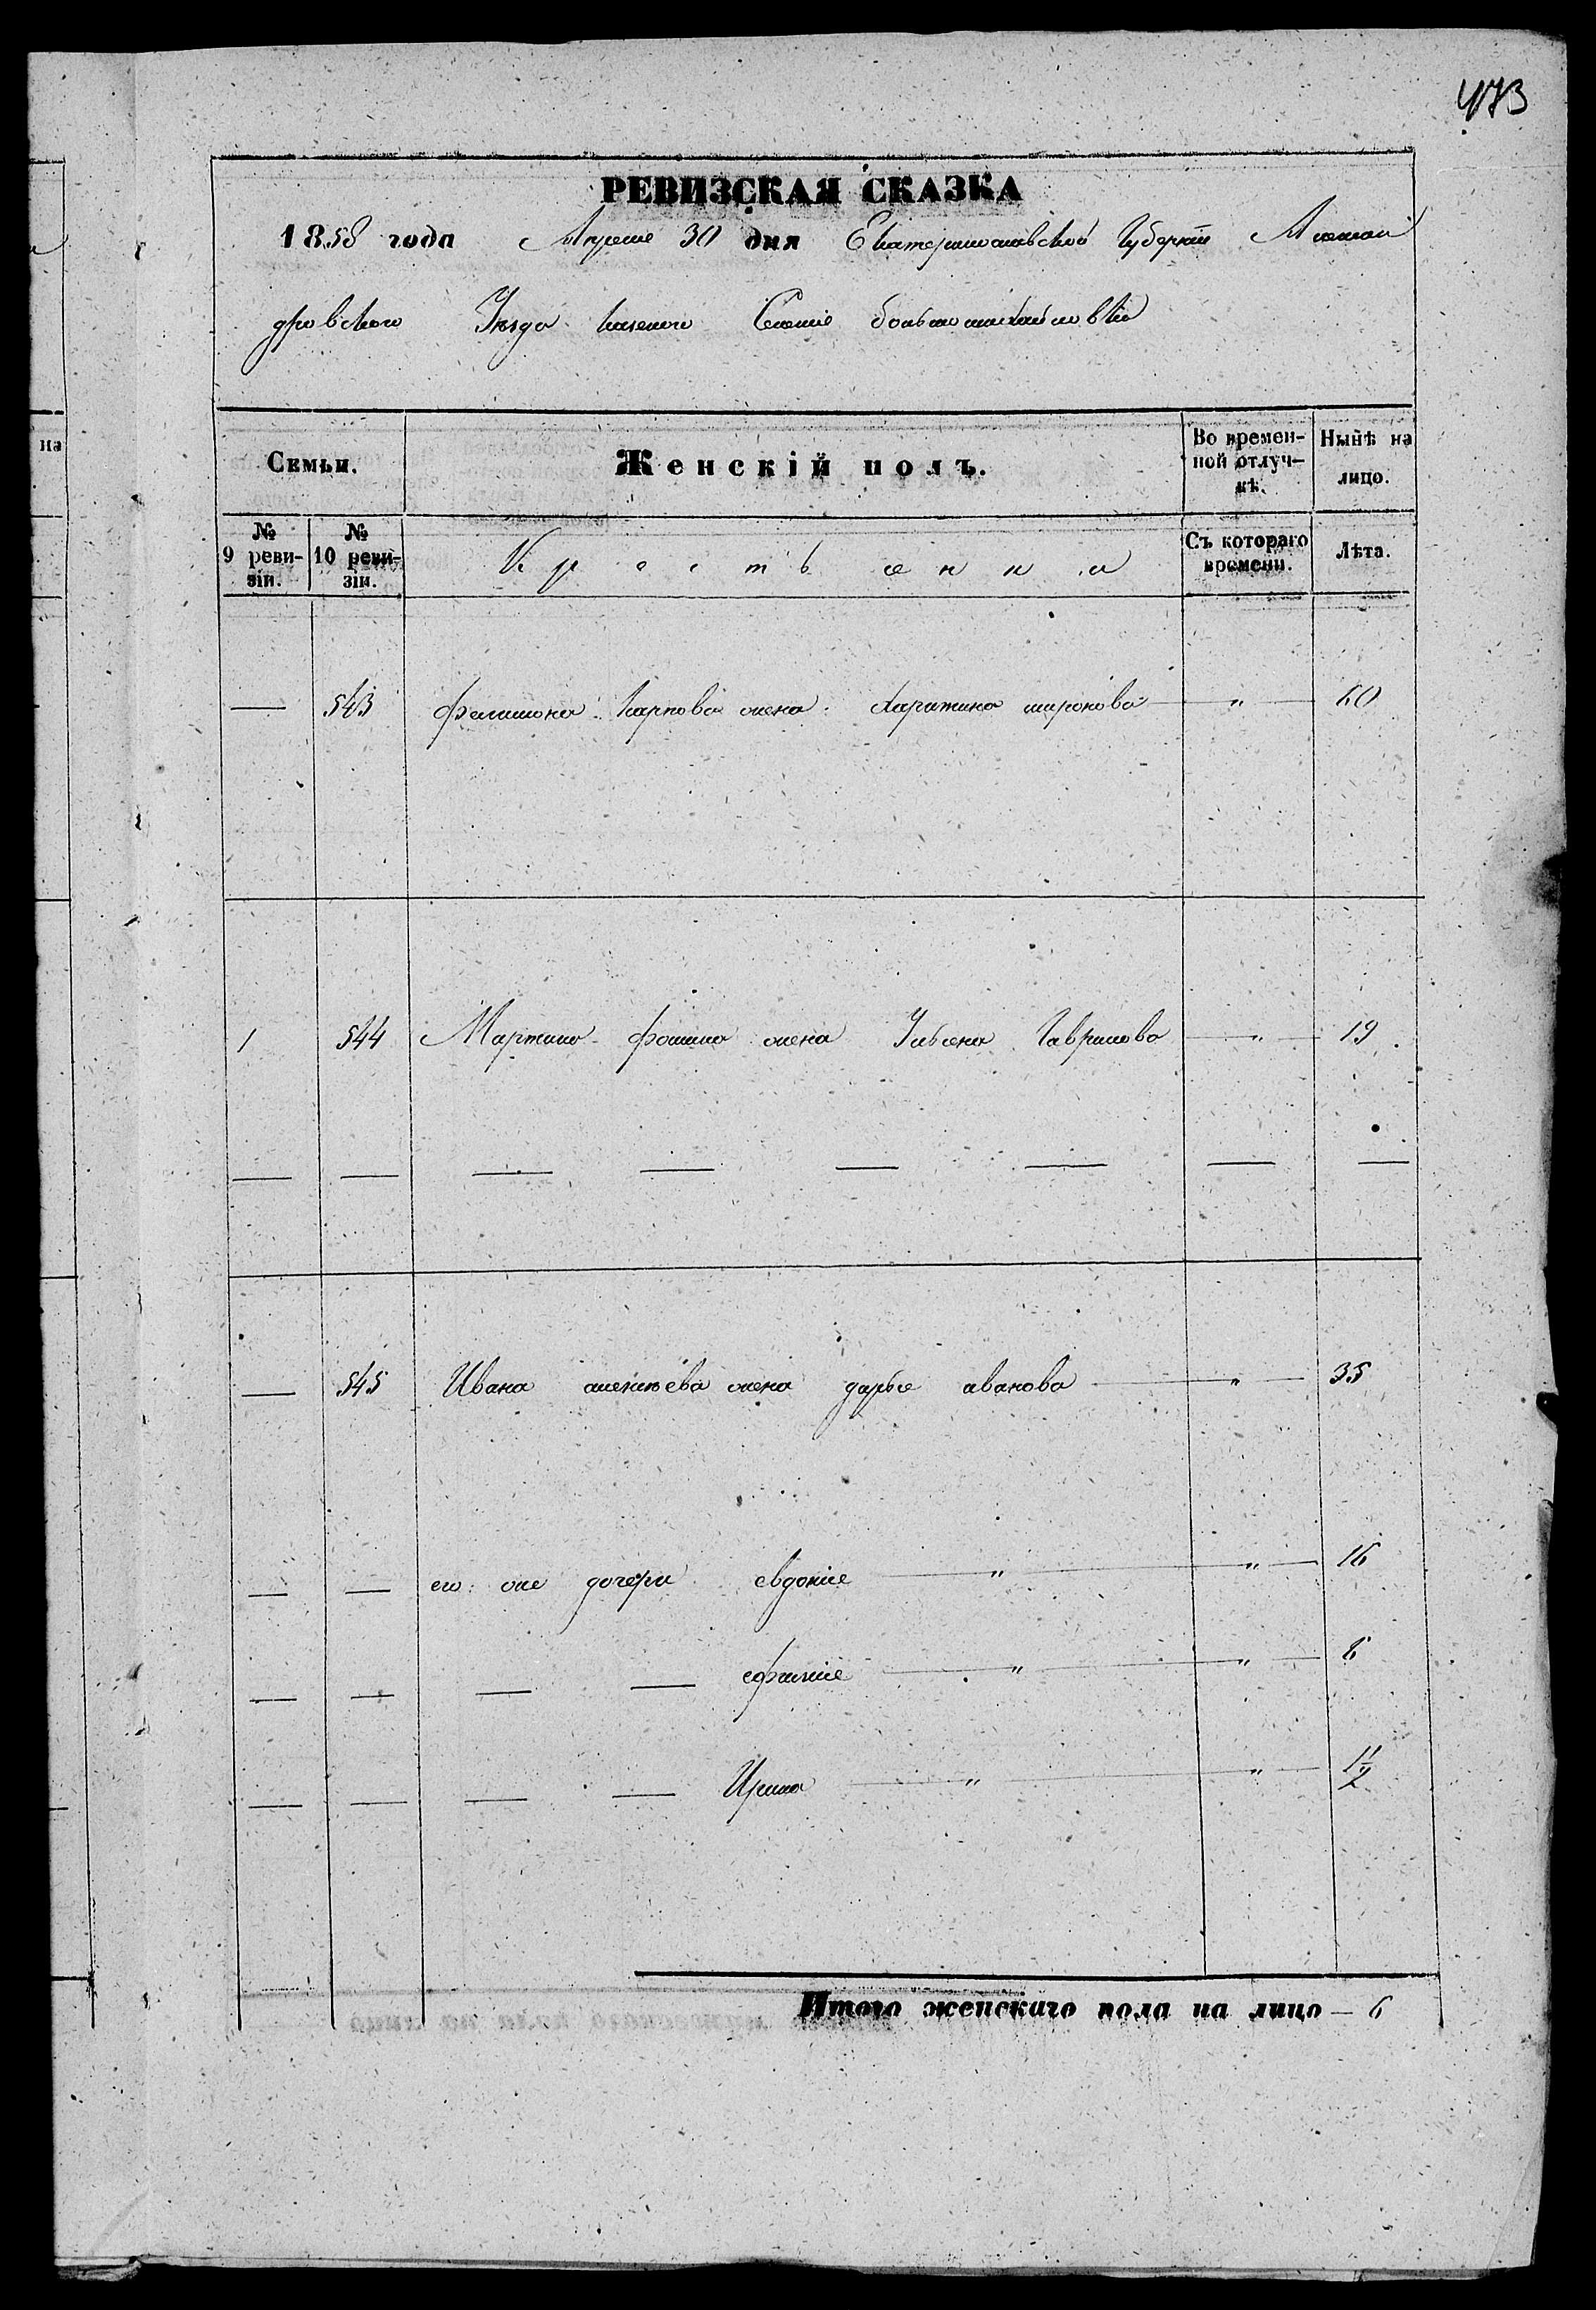 473
на
РЕВИЗСКАЯ СКАЗКА
1858 года Апреля 30 дня Екатеринославской Губернии Алексан
дровского Уезда казеного Селение большомихайловки
Семьи.
Женскій полъ.
Во времен-
ной отлуч-
кѣ.
Нынѣ на
лицо.
№
9 реви-
зіи.
№
10 реви-
зіи.
Крестьенни
Съ котораго
времени.
Лѣта.
— 543 филимона карпова жена харитина миронова — " — 60
1 544 Мартина фомина жена Ульяна Гаврилова — " — 19
— — — — — — — —
— 545 Ивана жена дарье иванова — " — 35
— — его же дочери евдокие — " — " — 16
— — — — ефимие — " — " — 6
— — — — Ирина — " — " — 1½
Итого женскаго пола на лицо — 6